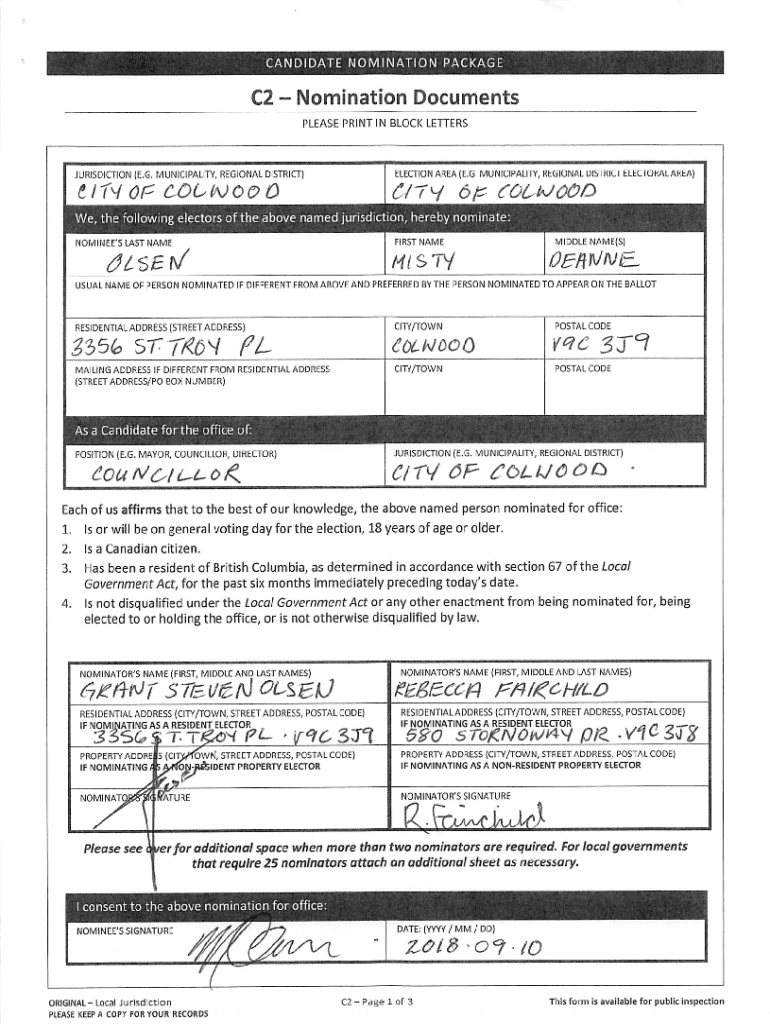 CANDIDATE NOMINATION PACKAGE
C2 – Nomination Documents
PLEASE PRINT IN BLOCK LETTERS
JURISDICTION (E.G. MUNICIPALITY, REGIONAL DISTRICT) ELECTION AREA (E.G. MUNICIPALITY, REGIONAL DISTRICT ELECTORAL AREA)
CITY OF COLWOOD CITY OF COLWOOD
We, the following electors of the above named jurisdiction, hereby nominate:
NOMINEE'S LAST NAME FIRST NAME MIDDLE NAME(S)
OLSEN MISTY DEANNE
USUAL NAME OF PERSON NOMINATED IF DIFFERENT FROM ABOVE AND PREFERRED BY THE PERSON NOMINATED TO APPEAR ON THE BALLOT
RESIDENTIAL ADDRESS (STREET ADDRESS) CITY/TOWN POSTAL CODE
3356 ST. TROY PL COLWOOD V9C 3J9
MAILING ADDRESS IF DIFFERENT FROM RESIDENTIAL ADDRESS CITY/TOWN POSTAL CODE
(STREET ADDRESS/PO BOX NUMBER)
As a Candidate for the office of:
POSITION (E.G. MAYOR, COUNCILLOR, DIRECTOR) JURISDICTION (E.G. MUNICIPALITY, REGIONAL DISTRICT)
COUNCILLOR CITY OF COLWOOD
Each of us affirms that to the best of our knowledge, the above named person nominated for office:
1. Is or will be on general voting day for the election, 18 years of age or older.
2. Is a Canadian citizen.
3. Has been a resident of British Columbia, as determined in accordance with section 67 of the Local
Government Act, for the past six months immediately preceding today's date.
4. Is not disqualified under the Local Government Act or any other enactment from being nominated for, being
elected to or holding the office, or is not otherwise disqualified by law.
NOMINATOR'S NAME (FIRST, MIDDLE AND LAST NAMES) NOMINATOR'S NAME (FIRST, MIDDLE AND LAST NAMES)
GRANT STEVEN OLSEN REBECCA FAIRCHILD
RESIDENTIAL ADDRESS (CITY/TOWN, STREET ADDRESS, POSTAL CODE) RESIDENTIAL ADDRESS (CITY/TOWN, STREET ADDRESS, POSTAL CODE)
IF NOMINATING AS A RESIDENT ELECTOR IF NOMINATING AS A RESIDENT ELECTOR
3356 ST. TROY PL . V9C 3J9 580 STORNOWAY DR . V9C 3J8
PROPERTY ADDRESS (CITY/TOWN, STREET ADDRESS, POSTAL CODE) PROPERTY ADDRESS (CITY/TOWN, STREET ADDRESS, POSTAL CODE)
IF NOMINATING AS A NON-RESIDENT PROPERTY ELECTOR IF NOMINATING AS A NON-RESIDENT PROPERTY ELECTOR
NOMINATOR'S SIGNATURE NOMINATOR'S SIGNATURE
R. Fairchild
Please see over for additional space when more than two nominators are required. For local governments
that require 25 nominators attach an additional sheet as necessary.
I consent to the above nomination for office:
NOMINEE'S SIGNATURE DATE: (YYYY / MM / DD)
2018 . 09 . 10
ORIGINAL – Local Jurisdiction C2 – Page 1 of 3 This form is available for public inspection
PLEASE KEEP A COPY FOR YOUR RECORDS